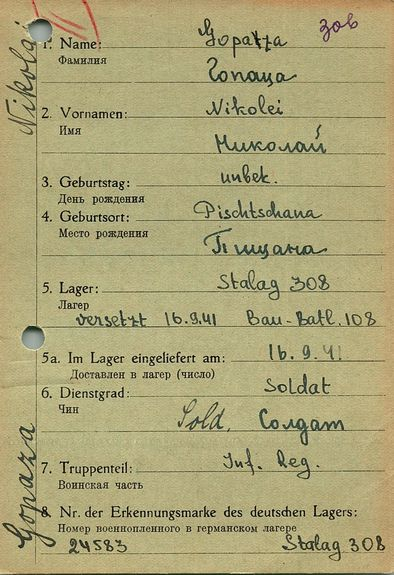 зов
1. Name: Gopatza
Фамилия
Гопаца
2. Vornamen: Nikolei
Имя
Миколай
3. Geburtstag: unbek.
День рождения
4. Geburtsort: Pischtschana
Место рождения
Пищана
5. Lager: Stalag 308
Лагер
versetzt 16.9.41 Bau-Batl. 108
5a. Im Lager eingeliefert am: 16.9.41
Доставлен в лагер (число)
6. Dienstgrad: Soldat
Чин
Sold. Солдат
7. Truppenteil: Inf. Reg.
Воинская часть
8. Nr. der Erkennungsmarke des deutschen Lagers:
Номер военнопленного в германском лагере
24583 Stalag 308
Gopaza Nikolai